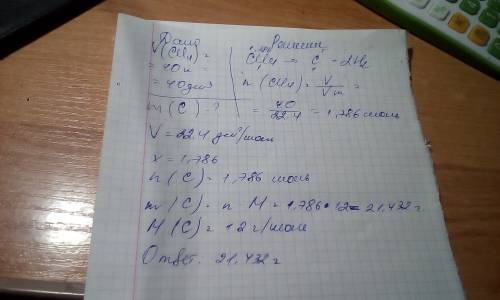 Дано
V(CH4) =
= 40л =
= 40 дм³
m(C) - ?
Решение
CH4 → C + 2H2
n(CH4) = V/Vm =
= 40/22.4 = 1,786 моль
V = 22.4 дм³/моль
x = 1,786
n(C) = 1,786 моль
m(C) = n · M = 1,786 · 12 = 21,432 г
M(C) = 12 г/моль
Ответ: 21,432 г